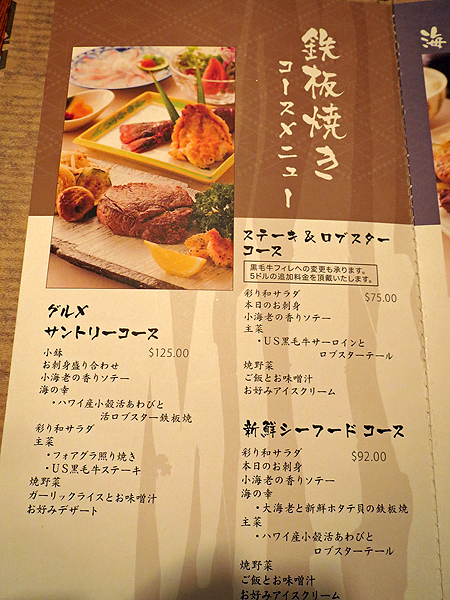 海
鉄板焼き
コースメニュー
グルメ
サントリーコース
小鉢 $125.00
お刺身盛り合わせ
小海老の香りソテー
海の幸
・ハワイ産小殻活あわびと
活ロブスター鉄板焼
彩り和サラダ
主菜
・フォアグラ照り焼き
・US黒毛牛ステーキ
焼野菜
ガーリックライスとお味噌汁
お好みデザート
ステーキ&ロブスター
コース
黒毛牛フィレへの変更も承ります。
5ドルの追加料金を頂戴いたします。
彩り和サラダ $75.00
本日のお刺身
小海老の香りソテー
主菜
・US黒毛牛サーロインと
ロブスターテール
焼野菜
ご飯とお味噌汁
お好みアイスクリーム
新鮮シーフードコース
彩り和サラダ $92.00
本日のお刺身
小海老の香りソテー
海の幸
・大海老と新鮮ホタテ貝の鉄板焼
主菜
・ハワイ産小殻活あわびと
ロブスターテール
焼野菜
ご飯とお味噌汁
お好みアイスクリーム